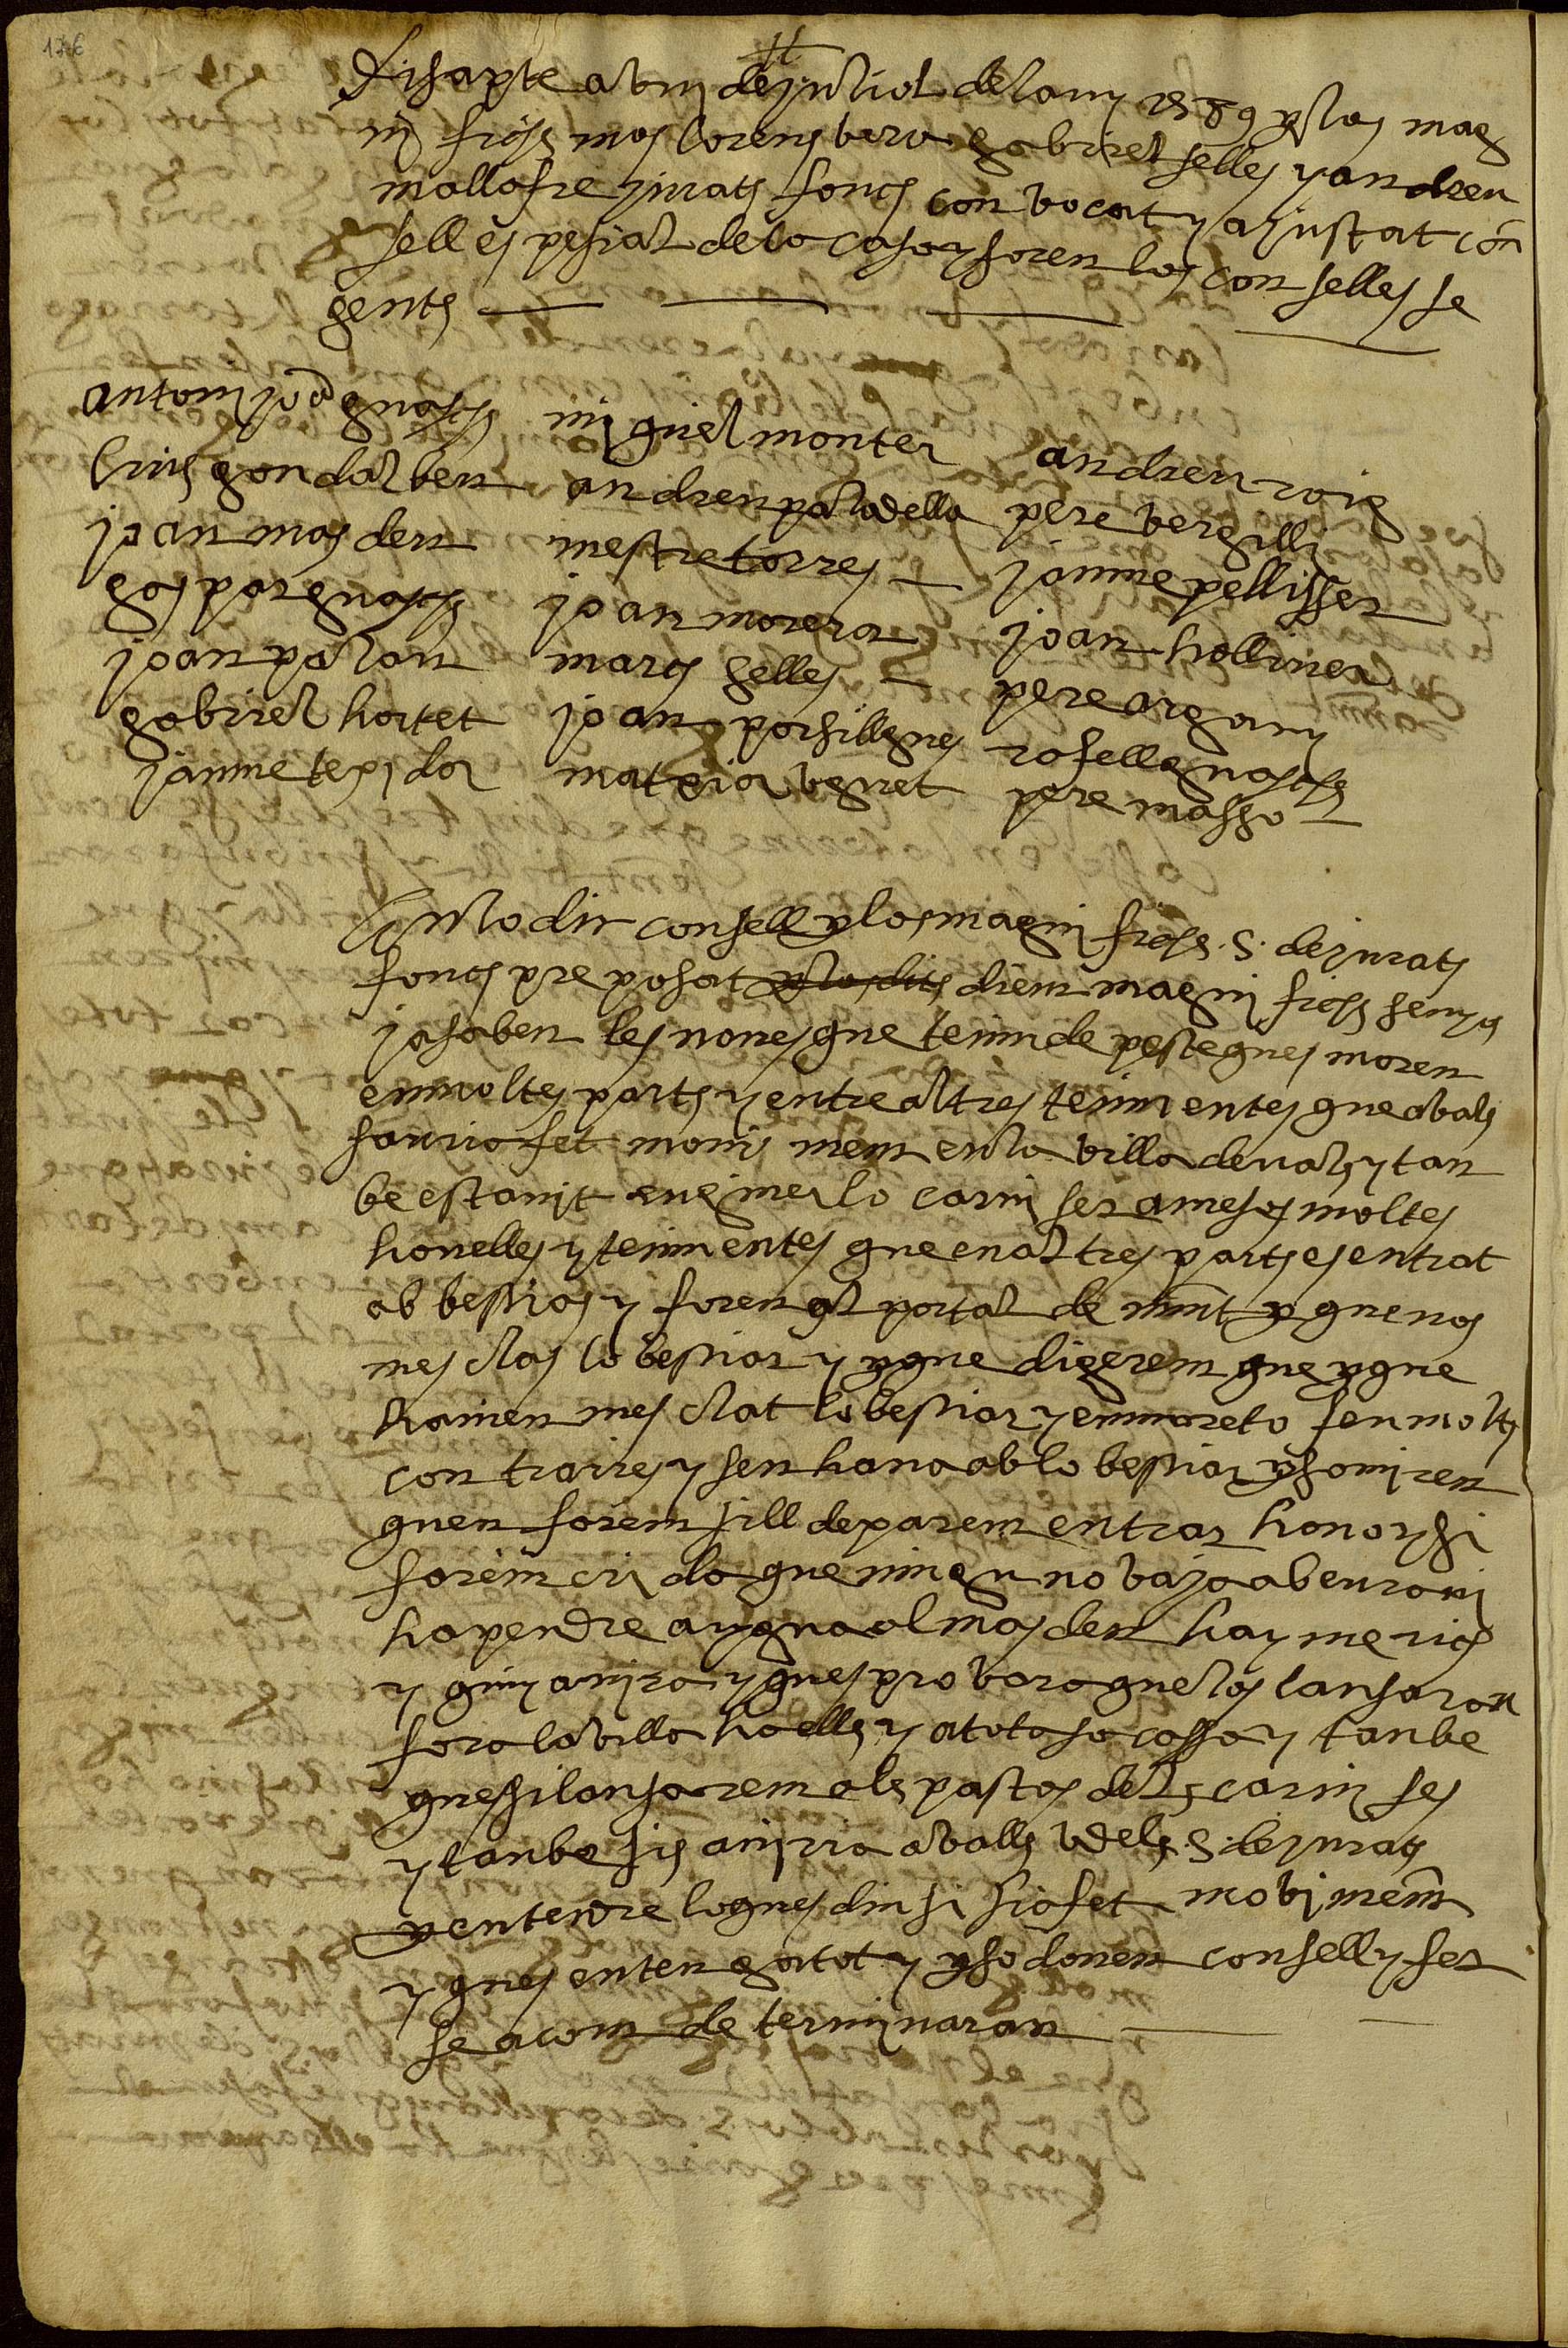 176
Disapte a viij de juliol de lany 1589 p los mag
nifichs mos lorens bera gabriel selles y andreu
mallafre jurats fonch convocat y ajustat con
sell espesial de la casa y foren los conselles se
gents
antoni joan guasch miquel monter andreu roig
luis gondalbeu andreu paladella pere vergilli
joan masdeu mestre torres jaume pellisser
gaspar guasch joan morera joan holliver
joan palau march selles pere argany
gabriel hortet joan porsillgues rosell guasch
jaume texidor matxior veyret pere masso
En lo dit consell p los magnifichs .s. de jurats
fonch preposat p los dits diem magnifichs senyos
ja saben les noves que tenim de peste ques moren
en moltes parts y entre altres tenim entes que a vals
sauria fet moviment en la villa de vals y tan
be estant engimer lo carni ser a mesos moltes
hovelles y tenim entes que en altres parts es entrat
ab bestiar y forem al portal de munt p que nos
mesclas lo bestiar y p que digerem que p que
havien mesclat lo bestiar y en moreto feu molts
contraris y sen hana ab lo bestiar
quen forem si ll deparem entrar ho no y si
farem crida que ningu no vaja abeurar ni
ha pendre aygua al mas den haymerich
y qui y anira y ques provara que los lansaran
fora la villa ha ells y a tota sa cassa y tanbe
que si lansarem als pastos dels carnises
y tanbe sis aniria a valls u dels .s. de jurats
p entendre lo ques diu si sia fet moviment
y ques entenga tot y p so donen consell y fer
se a com determinaran